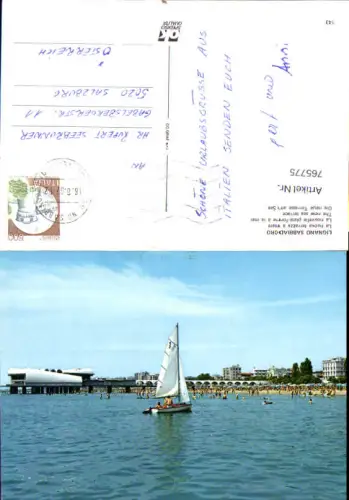 LIGNANO SABBIADORO
La nuova terrazza a mare
La nouvelle plate-forme à la mer
The new sea terrace
Die neue Terrasse am See
Artikel Nr.
765775
143
SCHÖNE URLAUBSGRÜSSE AUS
ITALIEN SENDEN EUCH
und Anni
OK
AN
HR. RUPERT SEEBRUNNER
GABELSBERGERSTR. 11
5020 SALZBURG
ÖSTERREICH
ITALIA
600